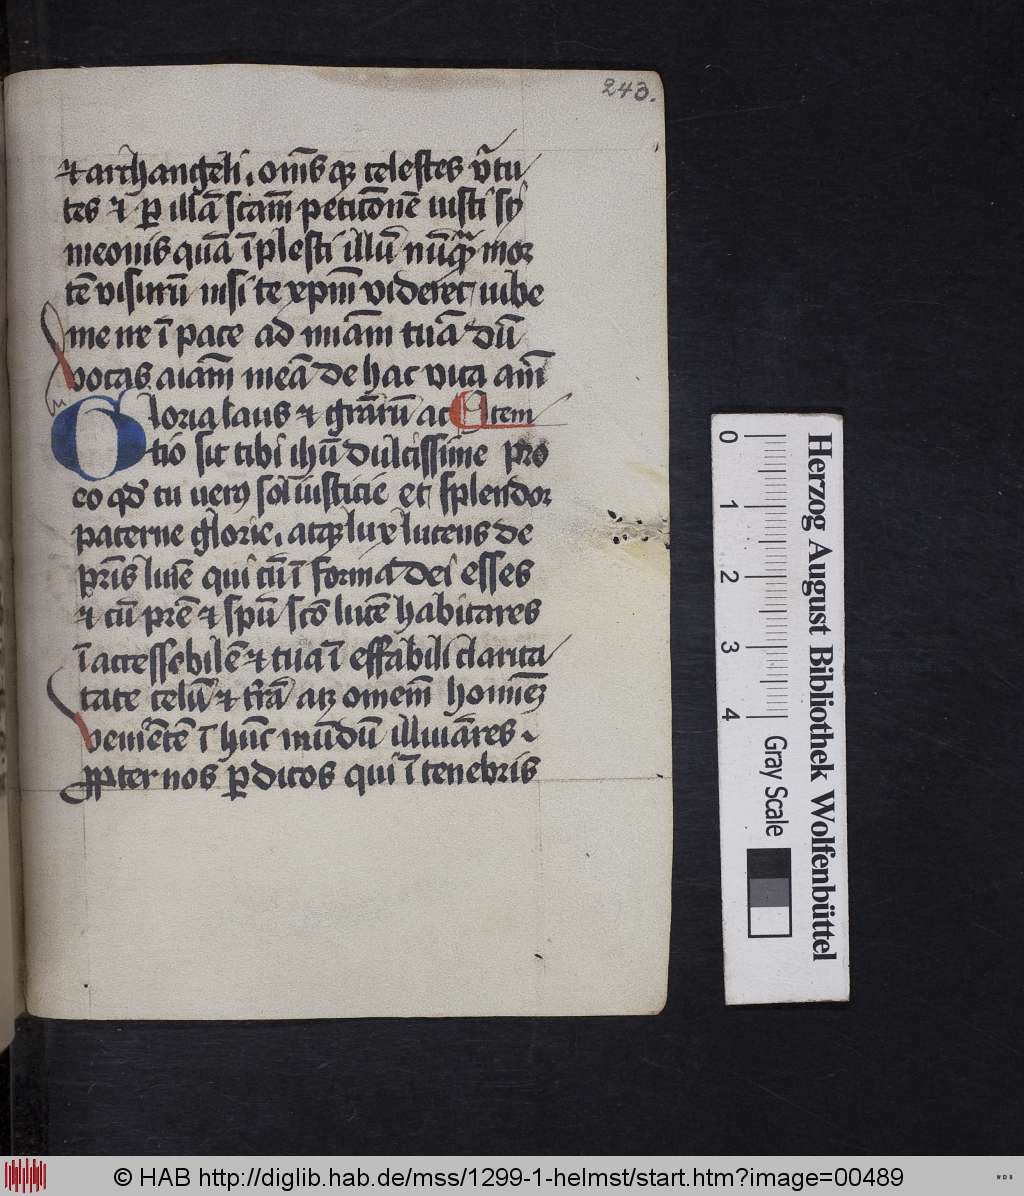 243.
⁊ archangeli. om̄s qꝫ celestes v̾tu
tes ⁊ ꝑ illā sc̄am peticōnē iusti sy
meonis quā ī plesti illū nūqᷓ mor
tē visurū nisi te xp̄m videret iube
me ire ī pace ad mīam tuā dū
vocas aīam meā de hac vita am̄
Gloria laus ⁊ gr̄arū ac Item
tiō sit tibi ihū dulcissime pro
eo qd̾ tu verꝰ sol iusticie et splendor
paterne glorie. atqꝫ lux lucens de
pr̄is lum̄e qui cū ī forma dei esses
⁊ cū pr̄e ⁊ sp̄u sc̄o lucē habitares
ī accessebilē ⁊ tua ī effabili clarita
tate celū ⁊ tr̄rā atqꝫ om̄em homīeꝫ
venīetē ī hūc mūdū illuīares.
ꝓpter nos ꝑditos qui ī tenebris
0 1 2 3 4
Gray Scale
Herzog August Bibliothek Wolfenbüttel
© HAB http://diglib.hab.de/mss/1299-1-helmst/start.htm?image=00489